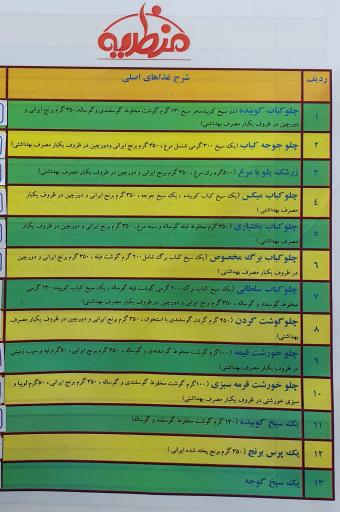 منظریه
ردیف
شرح غذاهای اصلی
۱
چلوکباب کوبیده (دو سیخ کوبیده هر سیخ ۱۳۰ گرم گوشت مخلوط گوسفندی و گوساله، ۳۵۰ گرم برنج ایرانی و
دورچین در ظروف یکبار مصرف بهداشتی)
۲
چلو جوجه کباب (یک سیخ ۳۰۰ گرمی شامل مرغ ، ۳۵۰ گرم برنج ایرانی ودورچین در ظروف یکبار مصرف بهداشتی)
۳
زرشک پلو با مرغ (۵۰۰گرم ران مرغ ، ۳۵۰ گرم برنج ایرانی و دورچین در ظروف یکبار مصرف بهداشتی)
۴
چلوکباب میکس (یک سیخ کباب کوبیده ، یک سیخ جوجه، ۳۵۰ گرم برنج ایرانی و دورچین در ظروف یکبار
مصرف بهداشتی)
۵
چلوکباب بختیاری (۳۵۰ گرم مخلوط فیله گوساله و سینه مرغ ، ۳۵۰ گرم برنج ایرانی و دورچین در ظروف یکبار
مصرف بهداشتی)
۶
چلوکباب برگ مخصوص (یک سیخ کباب برگ شامل ۲۰۰ گرم گوشت فیله ، ۳۵۰ گرم برنج ایرانی و دورچین
در ظروف یکبار مصرف بهداشتی)
۷
چلوکباب سلطانی (یک سیخ کباب برگ ۲۰۰ گرمی گوشت فیله گوساله ، یک سیخ کباب کوبیده ۱۳۰ گرمی
مخلوط گوسفند و گوساله ، ۳۵۰ گرم برنج ایرانی و دورچین در ظروف یکبار مصرف بهداشتی)
۸
چلوگوشت گردن (۴۵۰ گرم گردن گوسفندی با استخوان ، ۳۵۰ گرم برنج ایرانی و دورچین در ظروف یکبار مصرف
بهداشتی)
۹
چلو خورشت قیمه (۱۰۰گرم گوشت مخلوط گوسفندی و گوساله ، ۳۵۰ گرم برنج ایرانی ، ۵۰گرم لپه و سیب زمینی
در ظروف یکبار مصرف بهداشتی)
۱۰
چلو خورشت قرمه سبزی (۱۰۰گرم گوشت مخلوط گوسفندی و گوساله ، ۳۵۰ گرم برنج ایرانی ، ۵۰گرم لوبیا و
سبزی خورشتی در ظروف یکبار مصرف بهداشتی)
۱۱
یک سیخ کوبیده (۱۳۰ گرم گوشت مخلوط گوسفند و گوساله)
۱۲
یک پرس برنج (۳۵۰ گرم برنج پخته شده ایرانی)
۱۳
یک سیخ گوجه